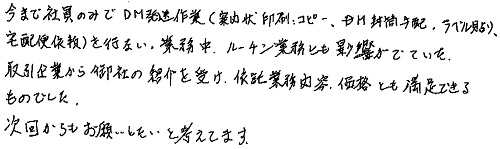 今まで社員のみでDM発送作業(案内状印刷、コピー、DM封筒手配、ラベル貼り、
宅配便依頼)を行ない、業務中、ルーチン業務とも影響がでていた。
取引企業から御社の紹介を受け、依託業務内容、価格とも満足できる
ものでした。
次回からもお願いしたいと考えてます。